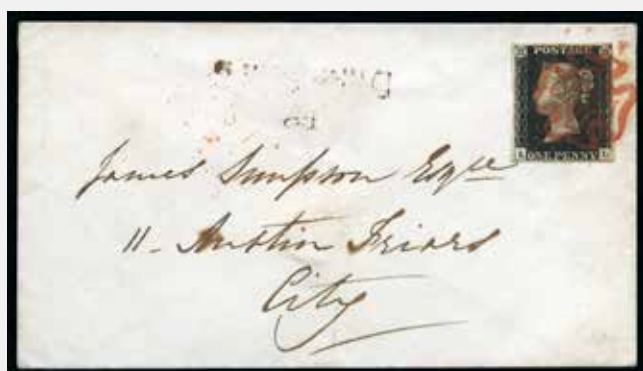 POSTAGE
ONE PENNY
James Simpson Esqre
11 - Austin Friars
City